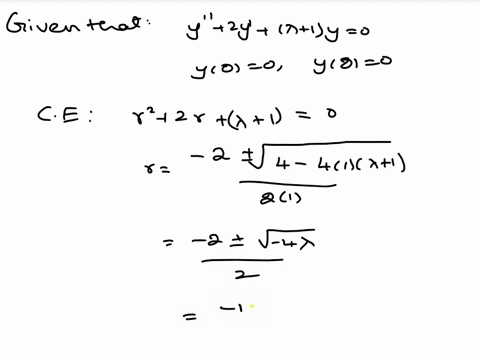 Given that: y'' + 2y' + (λ+1)y = 0
y(0) = 0, y(8) = 0
C.E: r² + 2r + (λ+1) = 0
r = (-2 ± √(4 - 4(1)(λ+1))) / 2(1)
= (-2 ± √(-4λ)) / 2
= -1